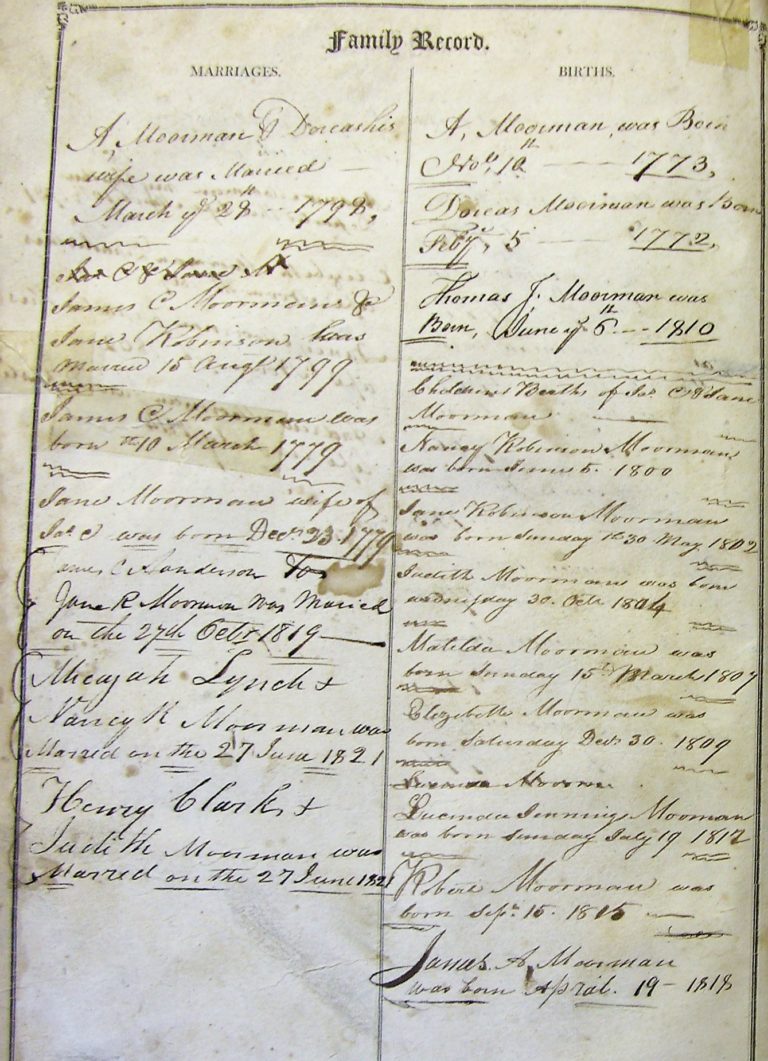 Family Record.
MARRIAGES.
A, Moorman & Dorcas his
wife was Married
March ye 28th 1798,
James C Moorman &
Jane Robinson was
married 15 Augt 1799
James C Moorman was
born th 10 March 1779
Jane Moorman wife of
Jas C was born Decr 23. 1779
James C Anderson To
Jane R Moorman Was Maried
on the 27th Octr 1819
Micajah Lynch &
Nancy R Moorman was
Marred on the 27 June 1821
Henry Clark &
Judith Moorman was
Marred on the 27 June 182
BIRTHS.
A, Moorman, was Born
Nov, 10th 1773,
Dorcas Moorman was Born
Feby, 5 1772,
Thomas J. Moorman was
Born, June ye 6th 1810
Childrens Births of Jas C & Jane
Moorman
Nancy Robinson Moorman
was born June 5. 1800
Jane Robinson Moorman
was born Sunday 30 May 1802
Judith Moorman was born
wednesday 30. Octr 1804
Matilda Moorman was
born Sunday 15th March 1807
Elizabeth Moorman was
born Saturday Decr 30. 1809
Lucinda Moorm
Lucinda Jennings Moorman
was born Sunday July 19 1812
Robert Moorman was
born Sepr. 15. 1815
James A Moorman
was born Apral. 19 - 1818